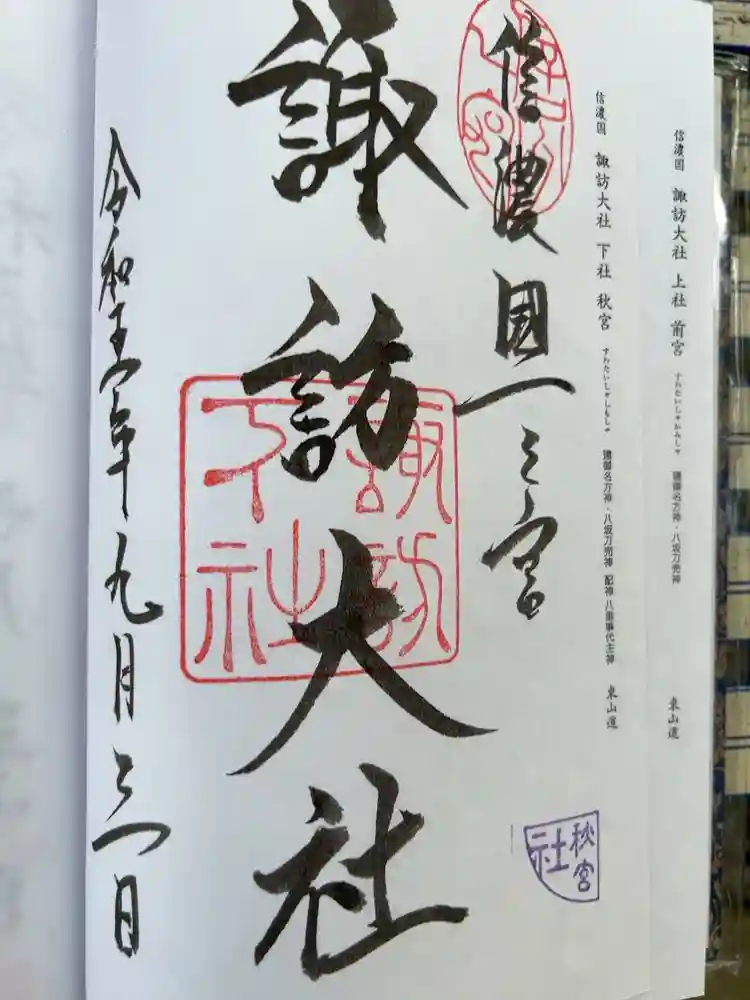 信濃国 諏訪大社 上社 前宮 すわたいしゃかみしゃ 建御名方神・八坂刀売神 東山道
信濃国 諏訪大社 下社 秋宮 すわたいしゃしもしゃ 建御名方神・八坂刀売神 配神 八重事代主神 東山道
秋宮
社
信濃國一之宮
諏訪大社
諏訪
下社
令和五年九月二日